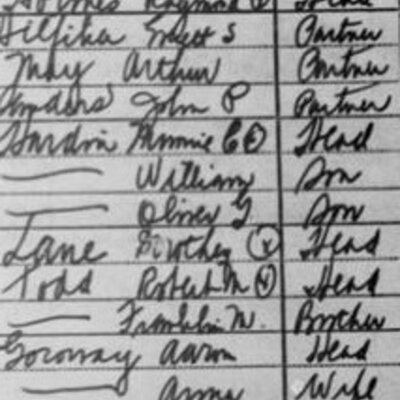 Raymond Head
Hilfiker S Partner
May Arthur Partner
John P Partner
Hardin Minnie C Ⓧ Head
— William Son
— Oliver G. Son
Lane Dorothy Ⓧ Head
Todd Robert M Ⓧ Head
— Franklin M. Brother
Goronway Aaron Head
— Anna Wife